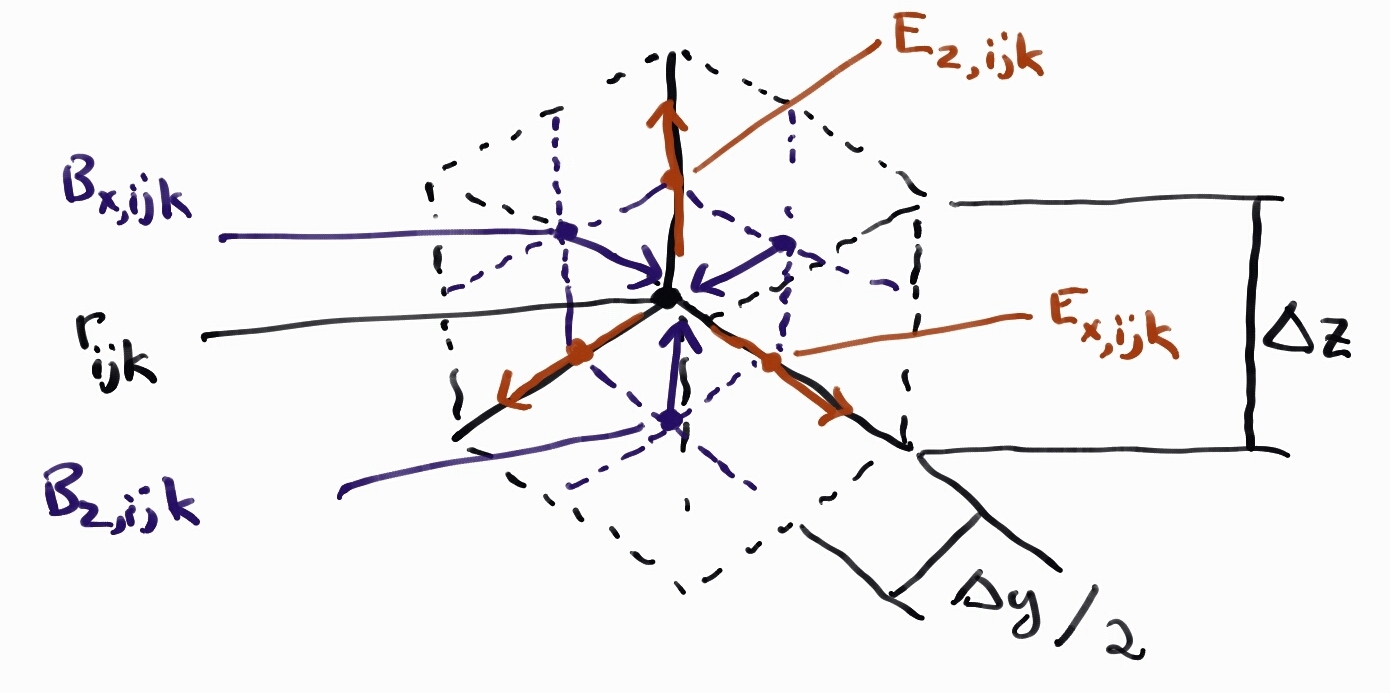 E z,ijk
B x,ijk
r ijk
E x,ijk
Δz
B z,ijk
Δy/2